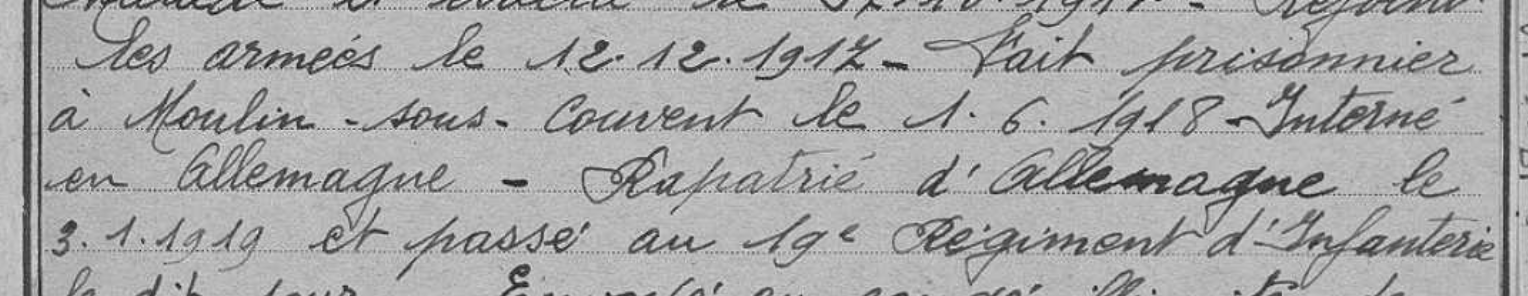 les armées le 12.12.1917 - Fait prisonnier
à Moulin-sous-Couvent le 1.6.1918 - Interné
en Allemagne - Rapatrié d'Allemagne le
3.1.1919 et passé au 19e Régiment d'Infanterie